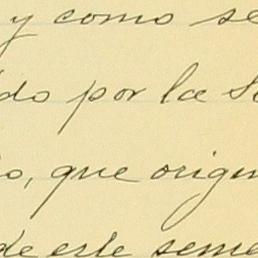 y como se
do por la S
o, que origin
de este seme